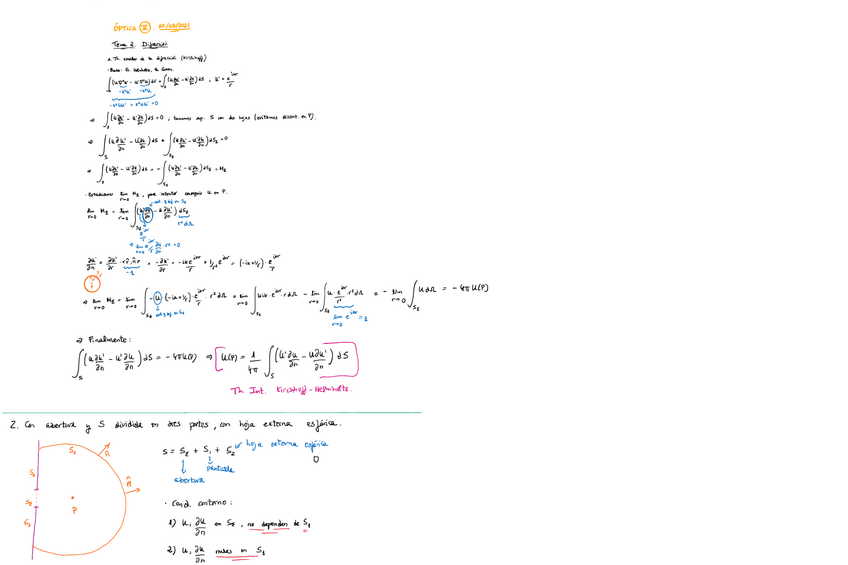 ÓPTICA II 02/03/2021
Tema 2. Difracción
1. Th. escalar de la difracción (Kirchhoff)
∫(U∇²U' - U'∇²U)dV = ∫_S (U ∂U'/∂n - U' ∂U/∂n) dS ; U' = e^{ikr}/r
-k²U' -k²U
-k²UU' + k²UU' = 0
⇒ ∫_S (U ∂U'/∂n - U' ∂U/∂n) dS = 0 ; tomamos sup. S con dos hojas (evitamos discont. en P).
⇒ ∫_S (U ∂U'/∂n - U' ∂U/∂n) dS + ∫_{Sε} (U ∂U'/∂n - U' ∂U/∂n) dSε = 0
⇒ ∫_S (U ∂U'/∂n - U' ∂U/∂n) dS = - ∫_{Sε} (U ∂U'/∂n - U' ∂U/∂n) dSε = Mε
lim r→0 Mε = lim r→0 ∫_{Sε} (U' ∂U/∂n - U ∂U'/∂n) dSε
r²dΩ
∂U'/∂n = ∂U'/∂r · <r̂, n̂> = - ∂U'/∂r = -ik e^{ikr}/r + 1/r² e^{ikr} = (-ik + 1/r) · e^{ikr}/r
-1
⇒ lim r→0 Mε = lim r→0 ∫_{Sε} -U (-ik + 1/r) · e^{ikr}/r · r² dΩ = lim r→0 ∫ U ik · e^{ikr} · r dΩ - lim r→0 ∫_{Sε} U · e^{ikr}/r² · r² dΩ = - lim r→0 ∫_{Sε} U dΩ = -4π U(P)
lim r→0 e^{ikr} = 1
⇒ Finalmente:
∫_S (U ∂U'/∂n - U' ∂U/∂n) dS = -4πU(P) ⇒ U(P) = 1/4π ∫_S (U' ∂U/∂n - U ∂U'/∂n) dS
Th. Int. Kirchhoff-Helmholtz.
2. Con abertura y S dividida en tres partes, con hoja externa esférica.
S = S₀ + S₁ + S₂ hoja externa esférica
0
pantalla
abertura
S₂
n̂
S₁
n̂
S₀
P
S₁
· Cond. contorno:
1) U, ∂U/∂n en S₀, no dependen de S₁
2) U, ∂U/∂n nulas en S₁